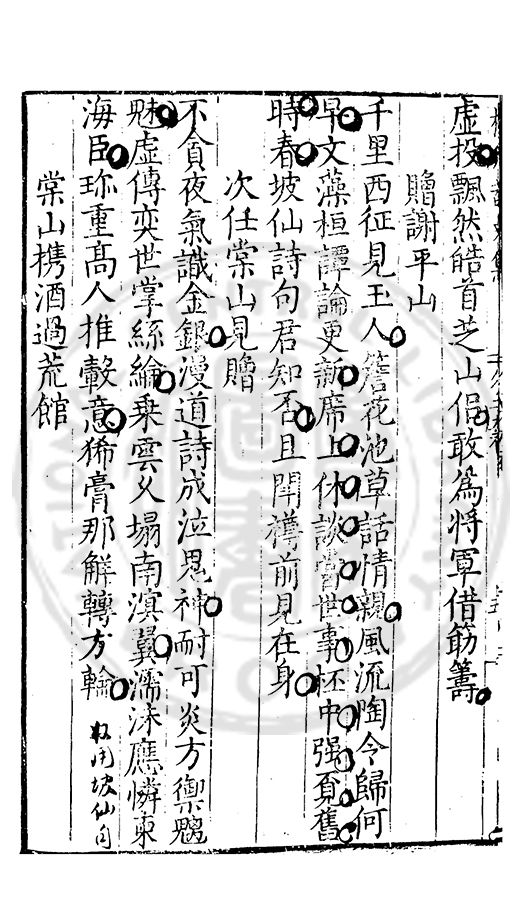 虛投飄然皓首芝山侣敢爲將軍借筯籌
贈謝平山
千里西征見玉人簷花池草話情親風流陶令歸何
早文藻桓譚論更新席上休談當世事杯中强頁舊
時春坡仙詩句君知否且鬥樽前見在身
次任棠山見贈
不貪夜氣識金銀漫道詩成泣鬼神耐可炎方禦魑
魅虛傳奕世掌絲綸乗雲乆塌南溟翼濡沫應憐東
海臣珎重髙人推轂意狶膏那解轉方輪
杜用坡仙句
棠山携酒過荒館